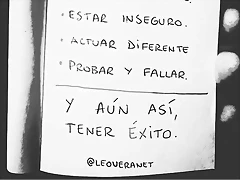 • ESTAR INSEGURO.
• ACTUAR DIFERENTE
• PROBAR Y FALLAR.
Y AÚN ASÍ,
TENER ÉXITO.
@LEOVERANET